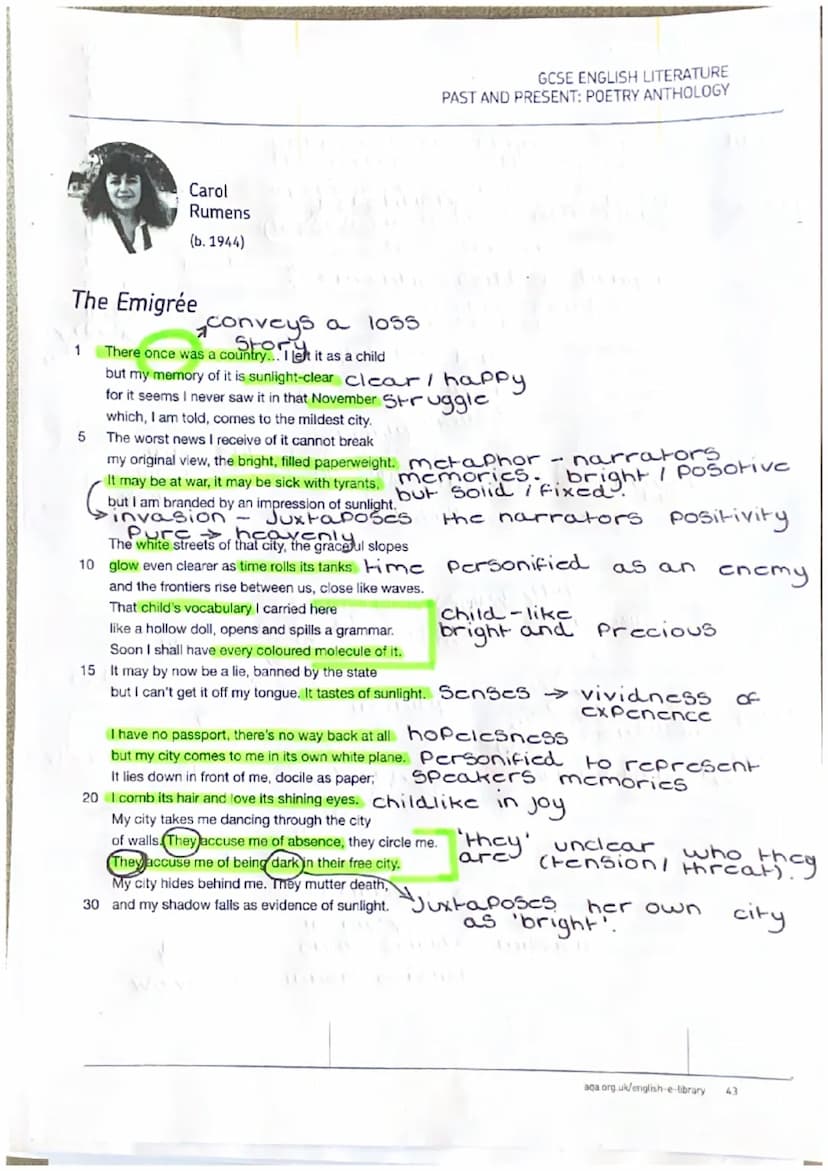 GCSE ENGLISH LITERATURE
PAST AND PRESENT: POETRY ANTHOLOGY
Carol
Rumens
(b. 1944)
The Emigrée
conveys a loss
story
1 There once was a country... I left it as a child
but my memory of it is sunlight-clear clear / happy
for it seems I never saw it in that November struggle
which, I am told, comes to the mildest city.
5 The worst news I receive of it cannot break
my original view, the bright, filled paperweight. metaphor - narrators
It may be at war, it may be sick with tyrants, memories. bright / posotive
but I am branded by an impression of sunlight. but solid / fixed.
invasion - Juxtaposes the narrators positivity
Pure → heavenly
The white streets of that city, the graceful slopes
10 glow even clearer as time rolls its tanks time personified as an enemy
and the frontiers rise between us, close like waves.
That child's vocabulary I carried here child-like
like a hollow doll, opens and spills a grammar. bright and precious
Soon I shall have every coloured molecule of it.
15 It may by now be a lie, banned by the state
but I can't get it off my tongue. It tastes of sunlight. senses → vividness of
expenence
I have no passport, there's no way back at all hopelesness
but my city comes to me in its own white plane. Personified to represent
It lies down in front of me, docile as paper; speakers memories
20 I comb its hair and love its shining eyes. childlike in joy
My city takes me dancing through the city
of walls. They accuse me of absence, they circle me. 'they' unclear who they
They accuse me of being dark in their free city. are (tension / threat).
My city hides behind me. They mutter death,
30 and my shadow falls as evidence of sunlight. Juxtaposes her own city
as 'bright'.
aqa.org.uk/english-e-library 43